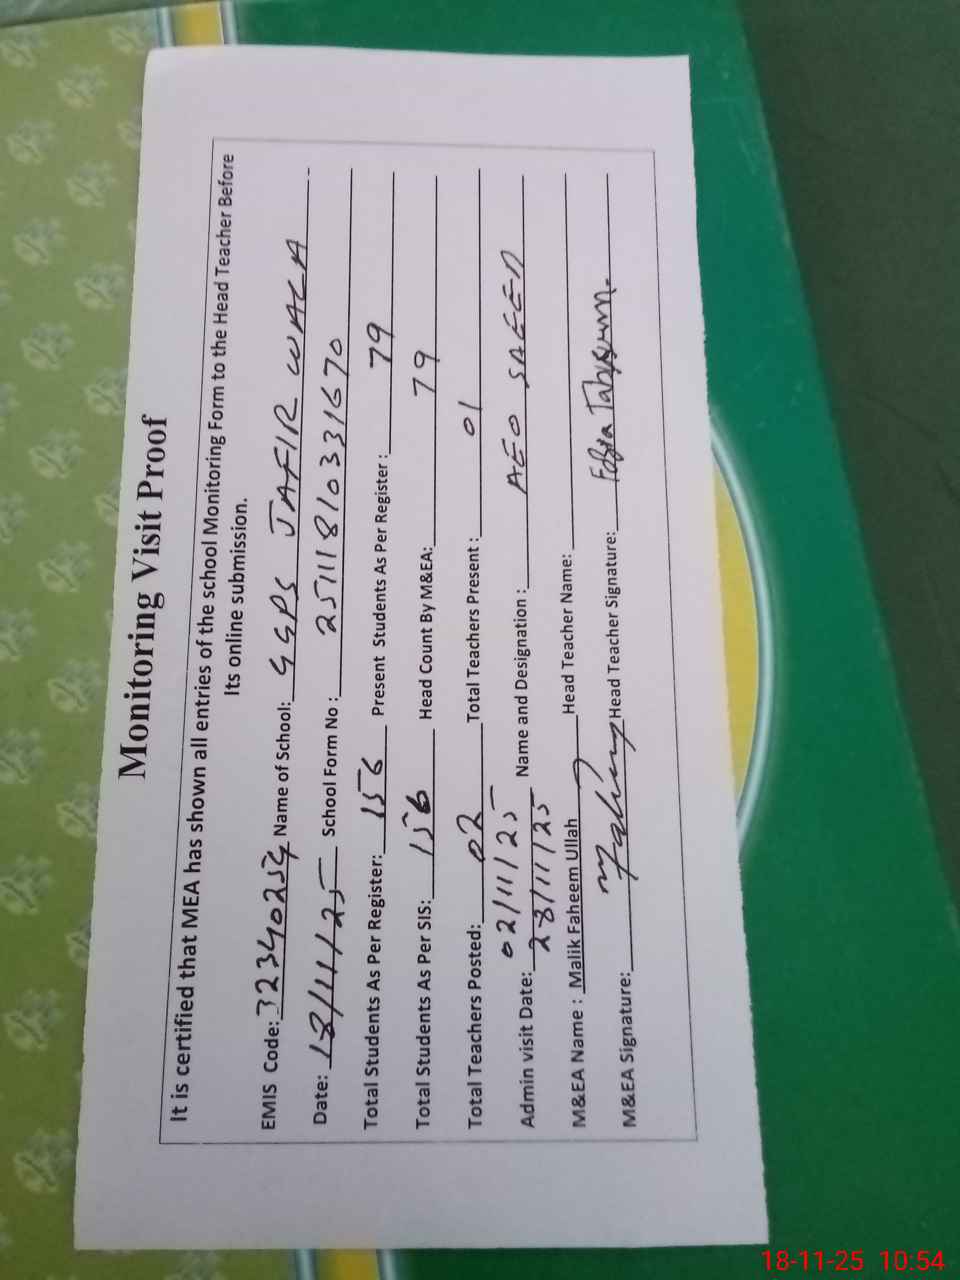 Monitoring Visit Proof
It is certified that MEA has shown all entries of the school Monitoring Form to the Head Teacher Before
Its online submission.
EMIS Code: 32340254 Name of School: GGPS JAFIR WALA
Date: 18/11/25 School Form No: 2511181033 1670
Total Students As Per Register: 156 Present Students As Per Register: 79
Total Students As Per SIS: 156 Head Count By M&EA: 79
Total Teachers Posted: 02 Total Teachers Present: 01
02/11/25
Admin visit Date: 28/11/25 Name and Designation: AEO SAEED
M&EA Name : Malik Faheem Ullah Head Teacher Name:
M&EA Signature: Head Teacher Signature: Tabssum.
18-11-25 10:54